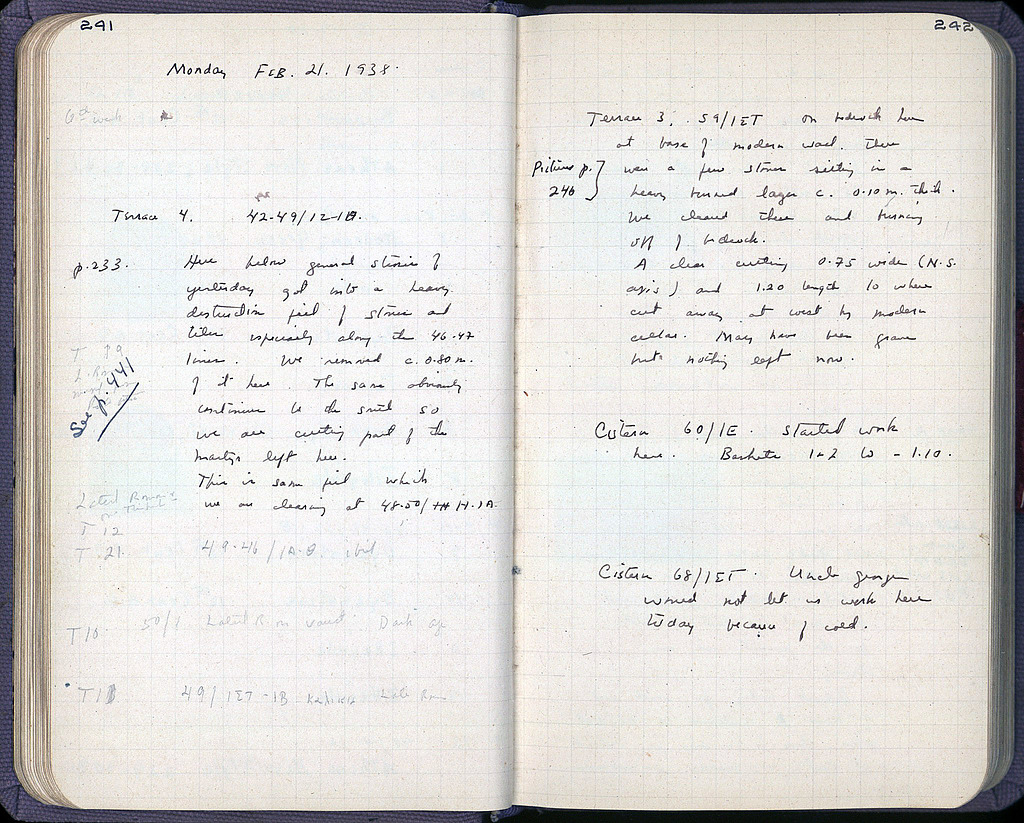 241
Monday FEB. 21. 1938.
6th week
Terrace 4. 42-49/12-1Θ.
p. 233. Here below general stones of
yesterday got into a heavy
destruction fill of stones and
tiles especially along the 46-47
lines. We removed c. 0.80 m.
T. 19
of it here. The same obviously
See p. 441
continues to the south so
we are cutting part of the
martyr left here.
This is same fill which
we are clearing at 48-50/ ΙΗ
T 12
T. 21. 49-46/1A-Θ
T10 50/1 Late Rom Dark age
T 11 49/1ΣΤ-1B Late Rom
242
Terrace 3. 59/1ΣΤ on bedrock here
at base of modern wall. There
Picture p. 246
were a few stones sitting in a
heavy burned layer c. 0.10 m. thick.
We cleared these and burning
off of bedrock.
A clear cutting 0.75 wide (N.S.
axis) and 1.20 length to where
cut away at west by modern
cellar. May have been grave
but nothing left now.
Cistern 60/1E. started work
here. Baskets 1+2 to -1.10.
Cistern 68/1ΣΤ. Uncle George
would not let us work here
today because of cold.